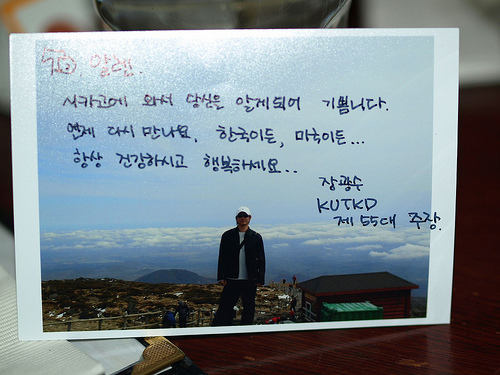 알렌.
시카고에 와서 당신은 알게되어 기쁩니다.
언제 다시 만나요. 한국이든, 미국이든...
항상 건강하시고 행복하세요..
장광수
KUTKD
제 55대 주장.